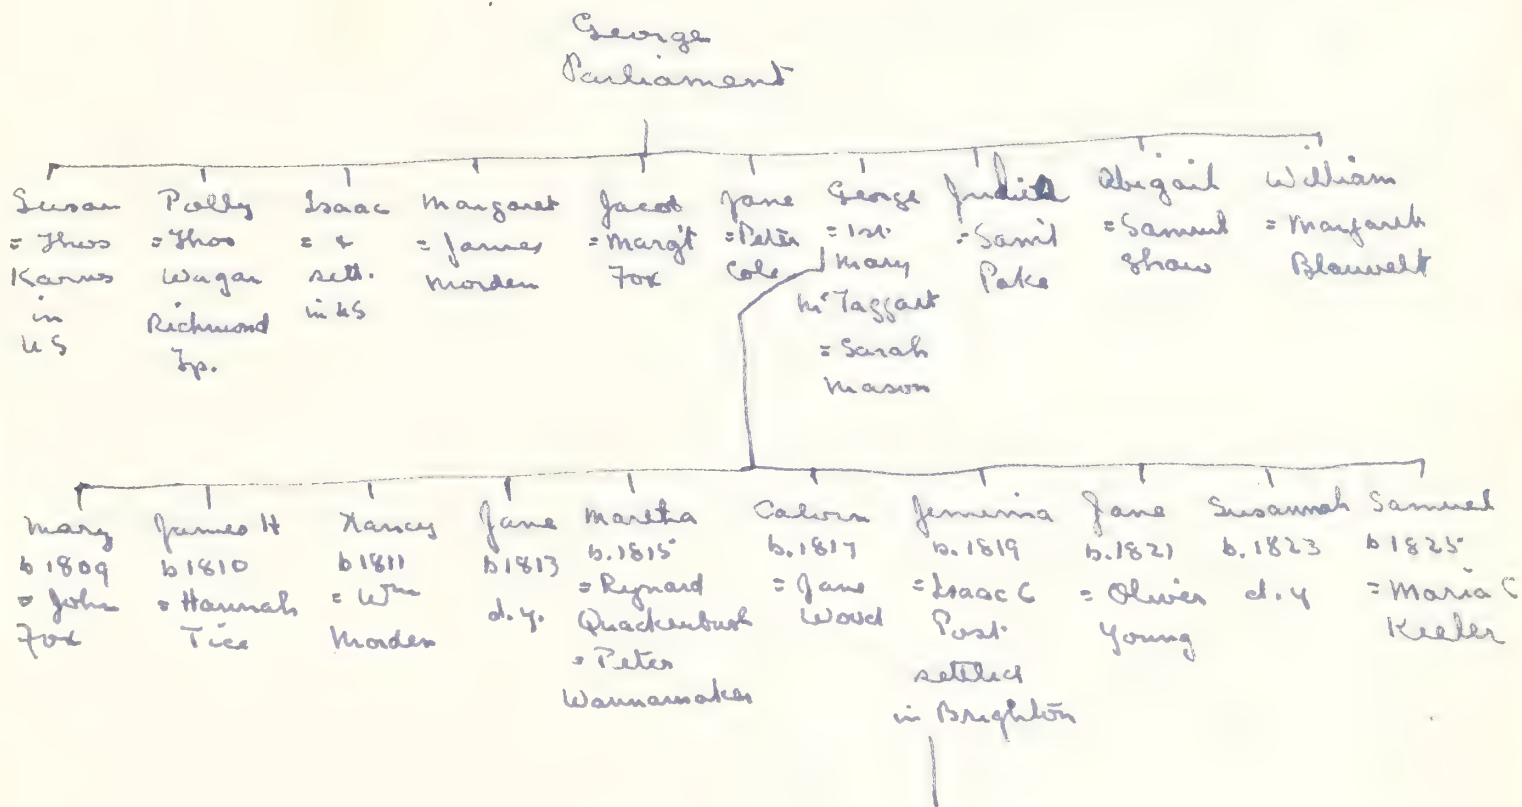 George
Parliament
Susan
= Thos
Karns
in
US
Polly
= Thos
Wagar
Richmond
Tp.
Isaac
= &
sett.
in US
Margaret
= James
Morden
Jacob
= Marg't
Fox
Jane
= Peter
Cole
George
= 1st.
Mary
McTaggart
= Sarah
Mason
Judith
= Saml
Pake
Abigail
= Samuel
Shaw
William
= Margaret
Blauvelt
Mary
b 1809
= John
Fox
James H
b 1810
= Hannah
Tice
Nancy
b 1811
= Wm
Morden
Jane
b 1813
d.y.
Martha
b. 1815
= Rynard
Quackenbush
= Peter
Wannamaker
Calvin
b. 1817
= Jane
Wood
Jemimia
b. 1819
= Isaac C
Post
settled
in Brighton
Jane
b. 1821
= Oliver
Young
Susannah
b. 1823
d. y
Samuel
b 1825
= Maria C
Keeler